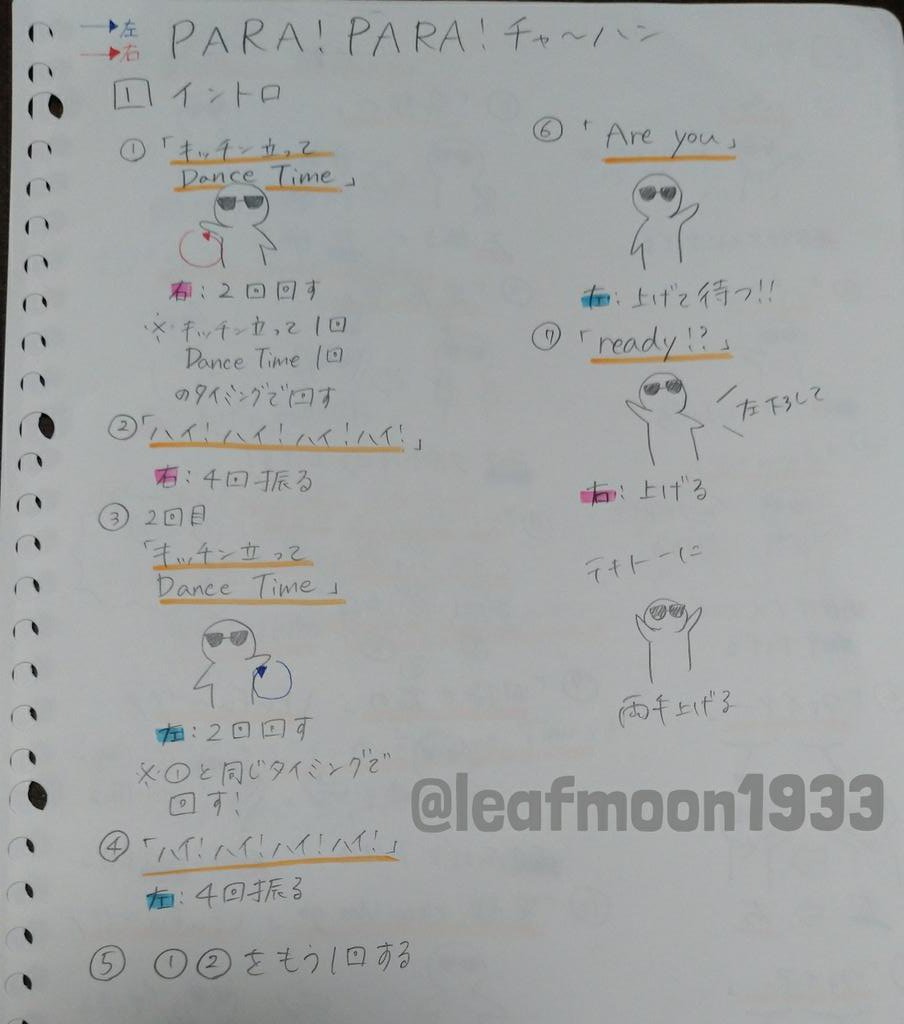 →左
→右
PARA!PARA!チャ〜ハン
1 イントロ
①「キッチン立って
Dance Time」
右:2回回す
※キッチン立って1回
Dance Time 1回
のタイミングで回す
②「ハイ!ハイ!ハイ!ハイ!」
右:4回振る
③ 2回目
「キッチン立って
Dance Time」
左:2回回す
※①と同じタイミングで
回す!
④「ハイ!ハイ!ハイ!ハイ!」
左:4回振る
⑤ ①②をもう1回する
⑥「Are you」
左:上げて待つ!!
⑦「ready!?」
左下ろして
右:上げる
テキトーに
両手上げる
@leafmoon1933